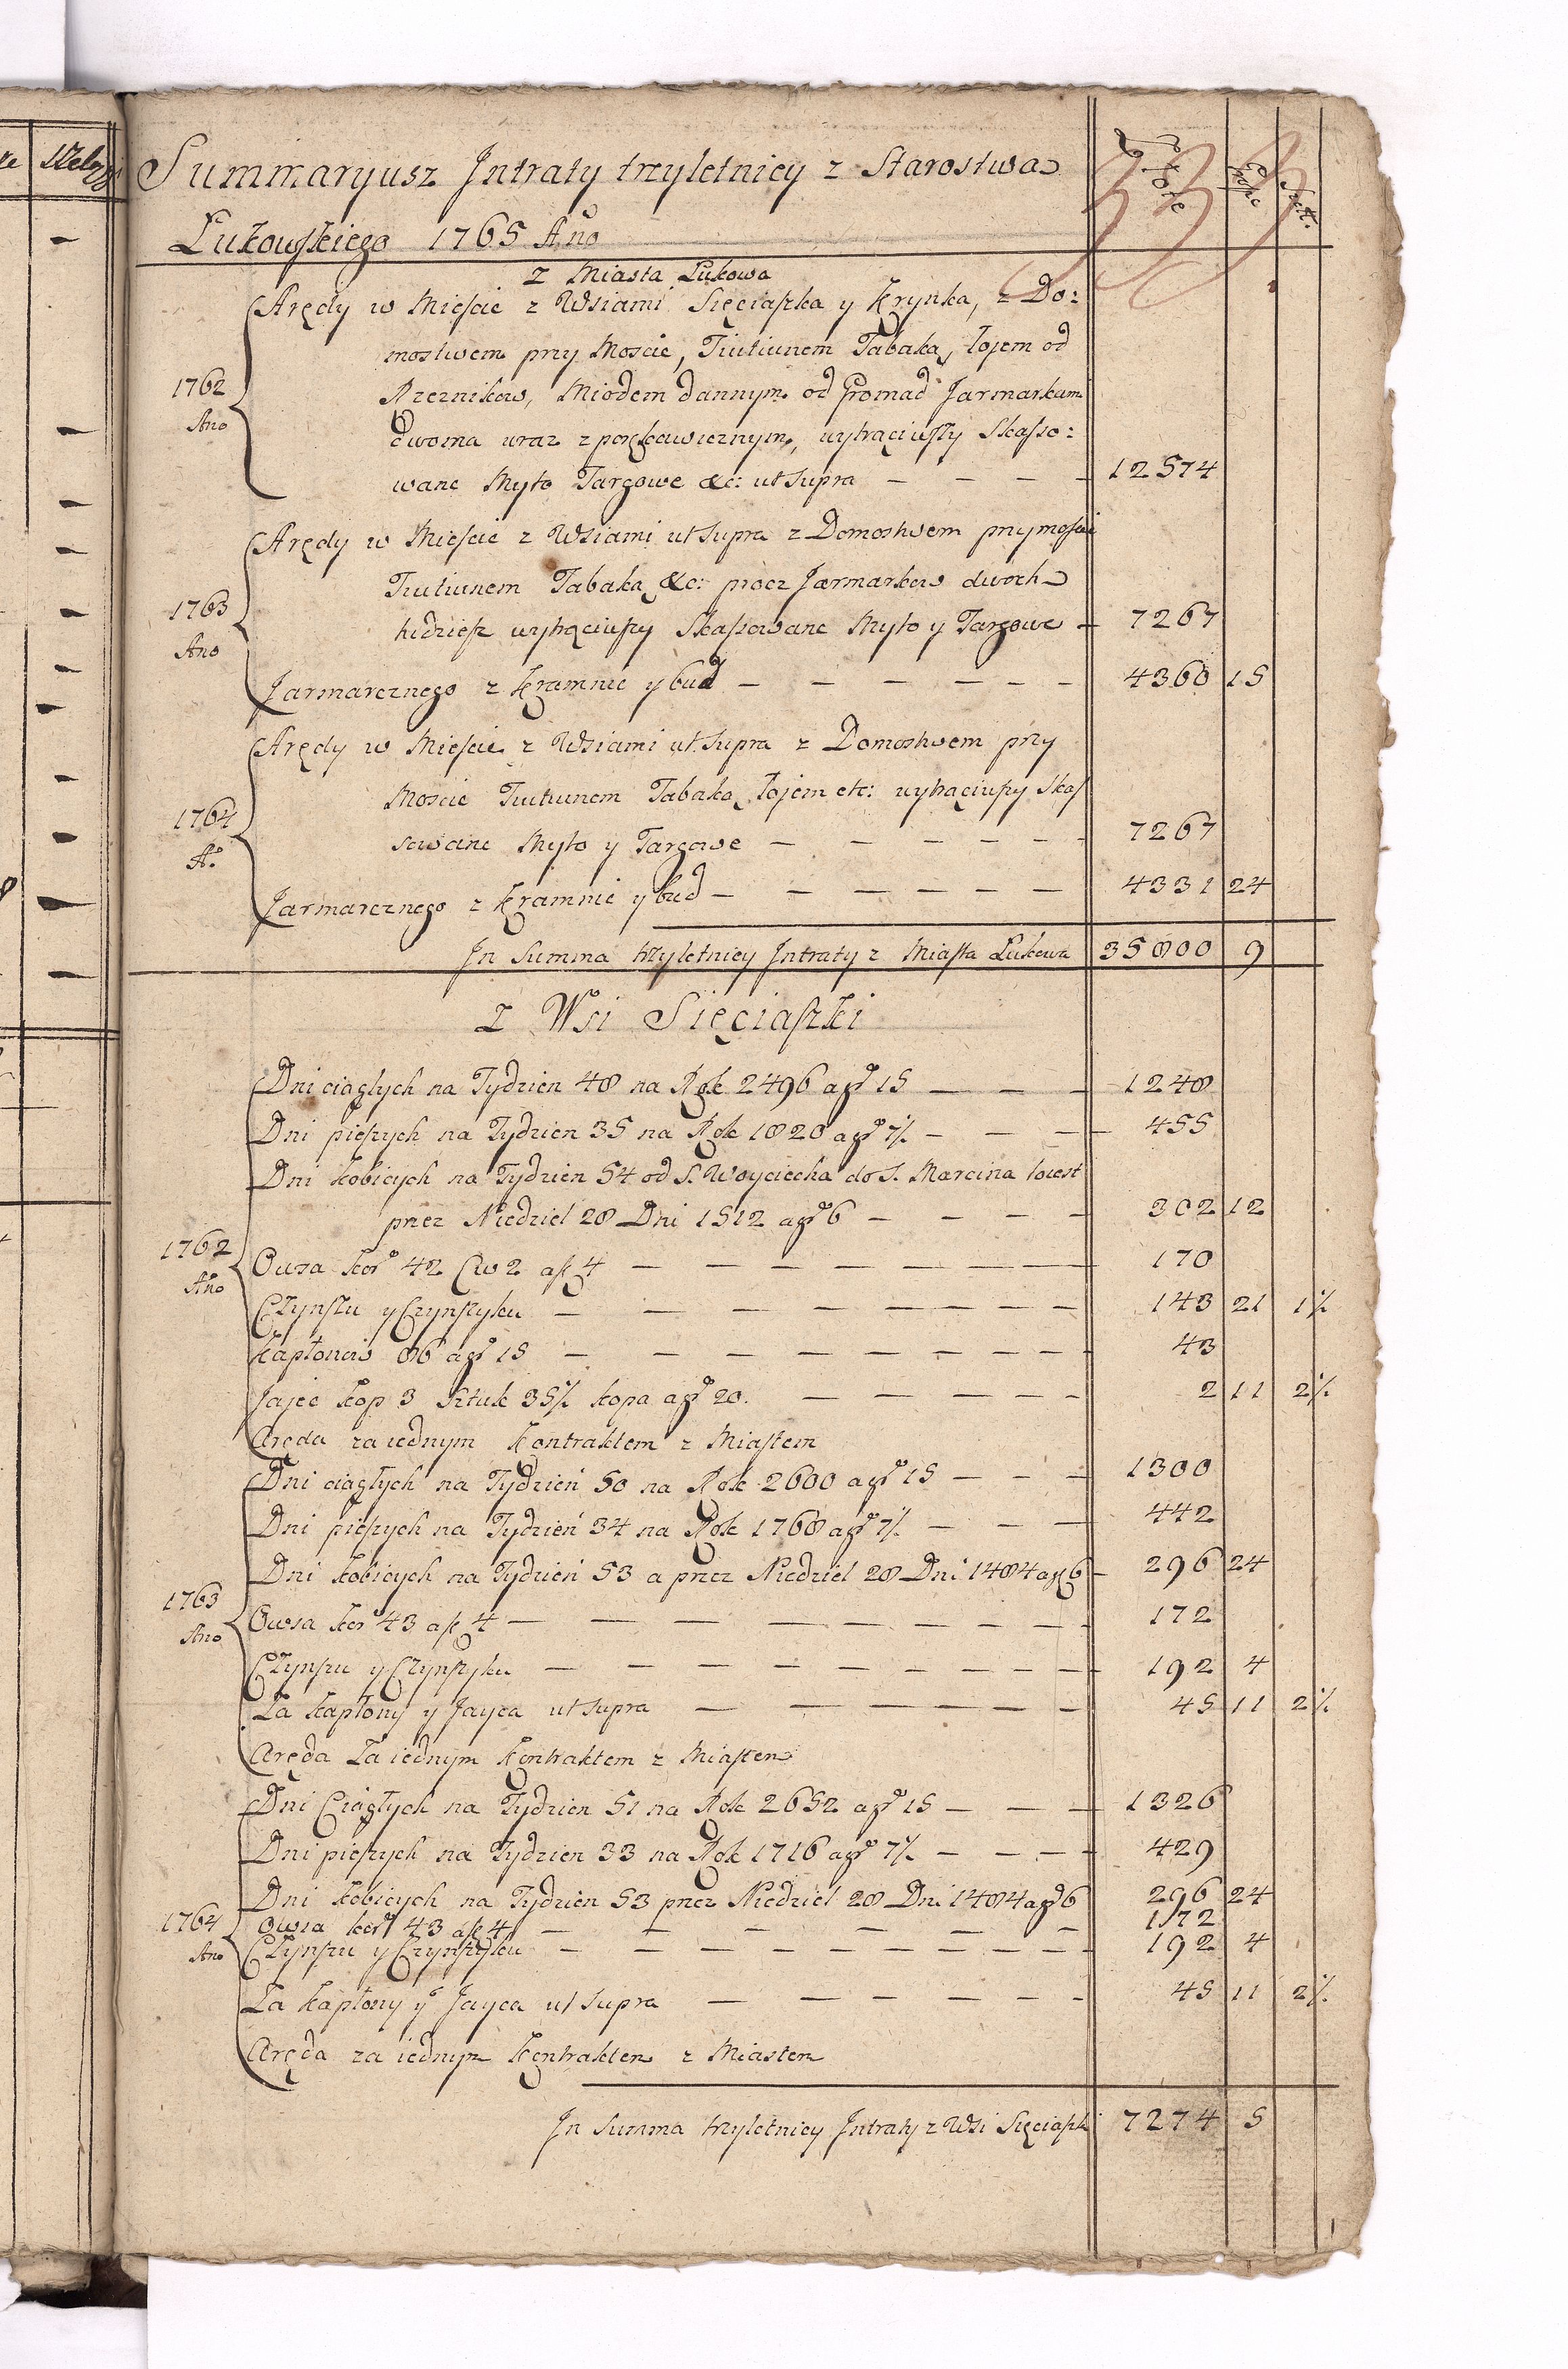 Summaryusz Jntraty trzyletniey z Starostwa Złote Grosze Szel:
Łukowskiego 1765 Año
z Miasta Łukowa
Arędy w Mieście z Wsiami Sięciaszka y Krynka, z Do:
mostwem przy Moscie, Tiutiunem Tabaką, łojem od
1762 Rzeznikow, Miodem dannym od Gromad Jarmarkami
Ano dwoma wraz z porękawicznym, wytrąciwszy Skasso:
wane Myto Targowe &c: ut supra — — — — 12574
Arędy w Mieście z Wsiami ut supra z Domostwem przy mościе
Tiutiunem Tabaką &c: procz Jarmarkow dwoch
1763 tudziesz wytrąciwszy Skassowane Myto y Targowe — 7267
Ano
Jarmarcznego z Kramnic y bud — — — — — — 4360 15
Arędy w Mieście z Wsiami ut supra z Domostwem przy
Moscie Tiutiunem Tabaką łojem etc: wytrąciwszy Skas
1764 sowane Myto y Targowe — — — — — — 7267
A°
Jarmarcznego z Kramnic y bud — — — — — — 4331 24
Jn Summa trzyletniey Jntraty z Miasta Łukowa 35800 9
z Wsi Sięciaszki
Dni ciągłych na Tydzien 48 na Rok 2496 a gr 15 — — — 1248
Dni pieszych na Tydzien 35 na Rok 1820 a gr 7½ — — — 455
Dni kobicych na Tydzien 54 od S. Woyciecha do S. Marcina to iest
przez Niedziel 28 Dni 1512 a gr 6 — — — — 302 12
1762 Owsa kor 42 Cw 2 a f 4 — — — — — — — — 170
Año
Czynszu y Czynszyku — — — — — — — — 143 21 1½
Kapłonow 86 a gr 15 — — — — — — — — 43
Jajec kop 3 sztuk 35½ kopa a gr 20. — — — — — 2 11 2½
Aręda za iednym Kontraktem z Miastem
Dni ciągłych na Tydzień 50 na Rok 2600 a gr 15 — — — 1300
Dni pieszych na Tydzień 34 na Rok 1768 a gr 7½ — — — 442
Dni kobicych na Tydzień 53 a przez Niedziel 28 Dni 1484 a gr 6 — 296 24
1763 Owsa kor 43 a f 4 — — — — — — — — — 172
Ano
Czynszu y Czynszyku — — — — — — — — — 192 4
Za kapłony y Jayca ut supra — — — — — — 45 11 2½
Aręda za iednym Kontraktem z Miastem
Dni Ciągłych na Tydzien 51 na Rok 2652 a gr 15 — — — 1326
Dni pieszych na Tydzien 33 na Rok 1716 a gr 7½ — — — — 429
Dni kobicych na Tydzien 53 przez Niedziel 28 Dni 1484 a gr 6 296 24
1764 Owsa kor 43 a f 4 — — — — — — 172
Ano Czynszu y Czynszyku — — — — — — — — — 192 4
Za kapłony y Jayca ut supra — — — — — — 45 11 2½
Aręda za iednym Kontraktem z Miastem
Jn Summa trzyletniey Jntraty z Wsi Sięciaszki 7274 5